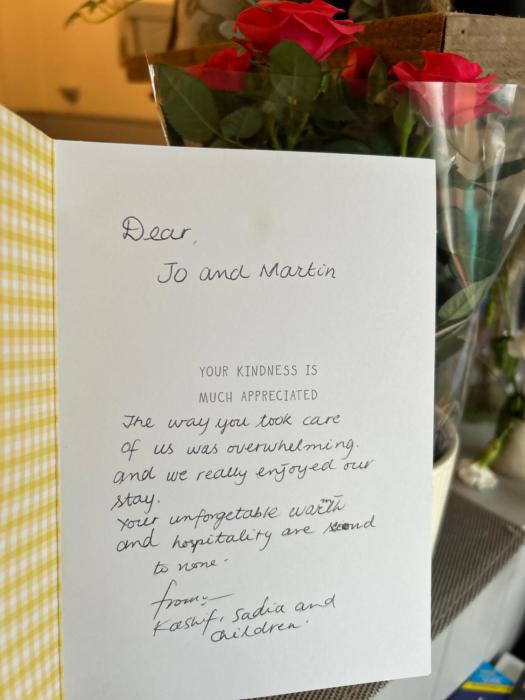 Dear,
Jo and Martin
YOUR KINDNESS IS
MUCH APPRECIATED
The way you took care
of us was overwhelming.
and we really enjoyed our
stay.
Your unforgetable warmth
and hospitality are second
to none.
from:-
Kashif, Sadia and
Children.